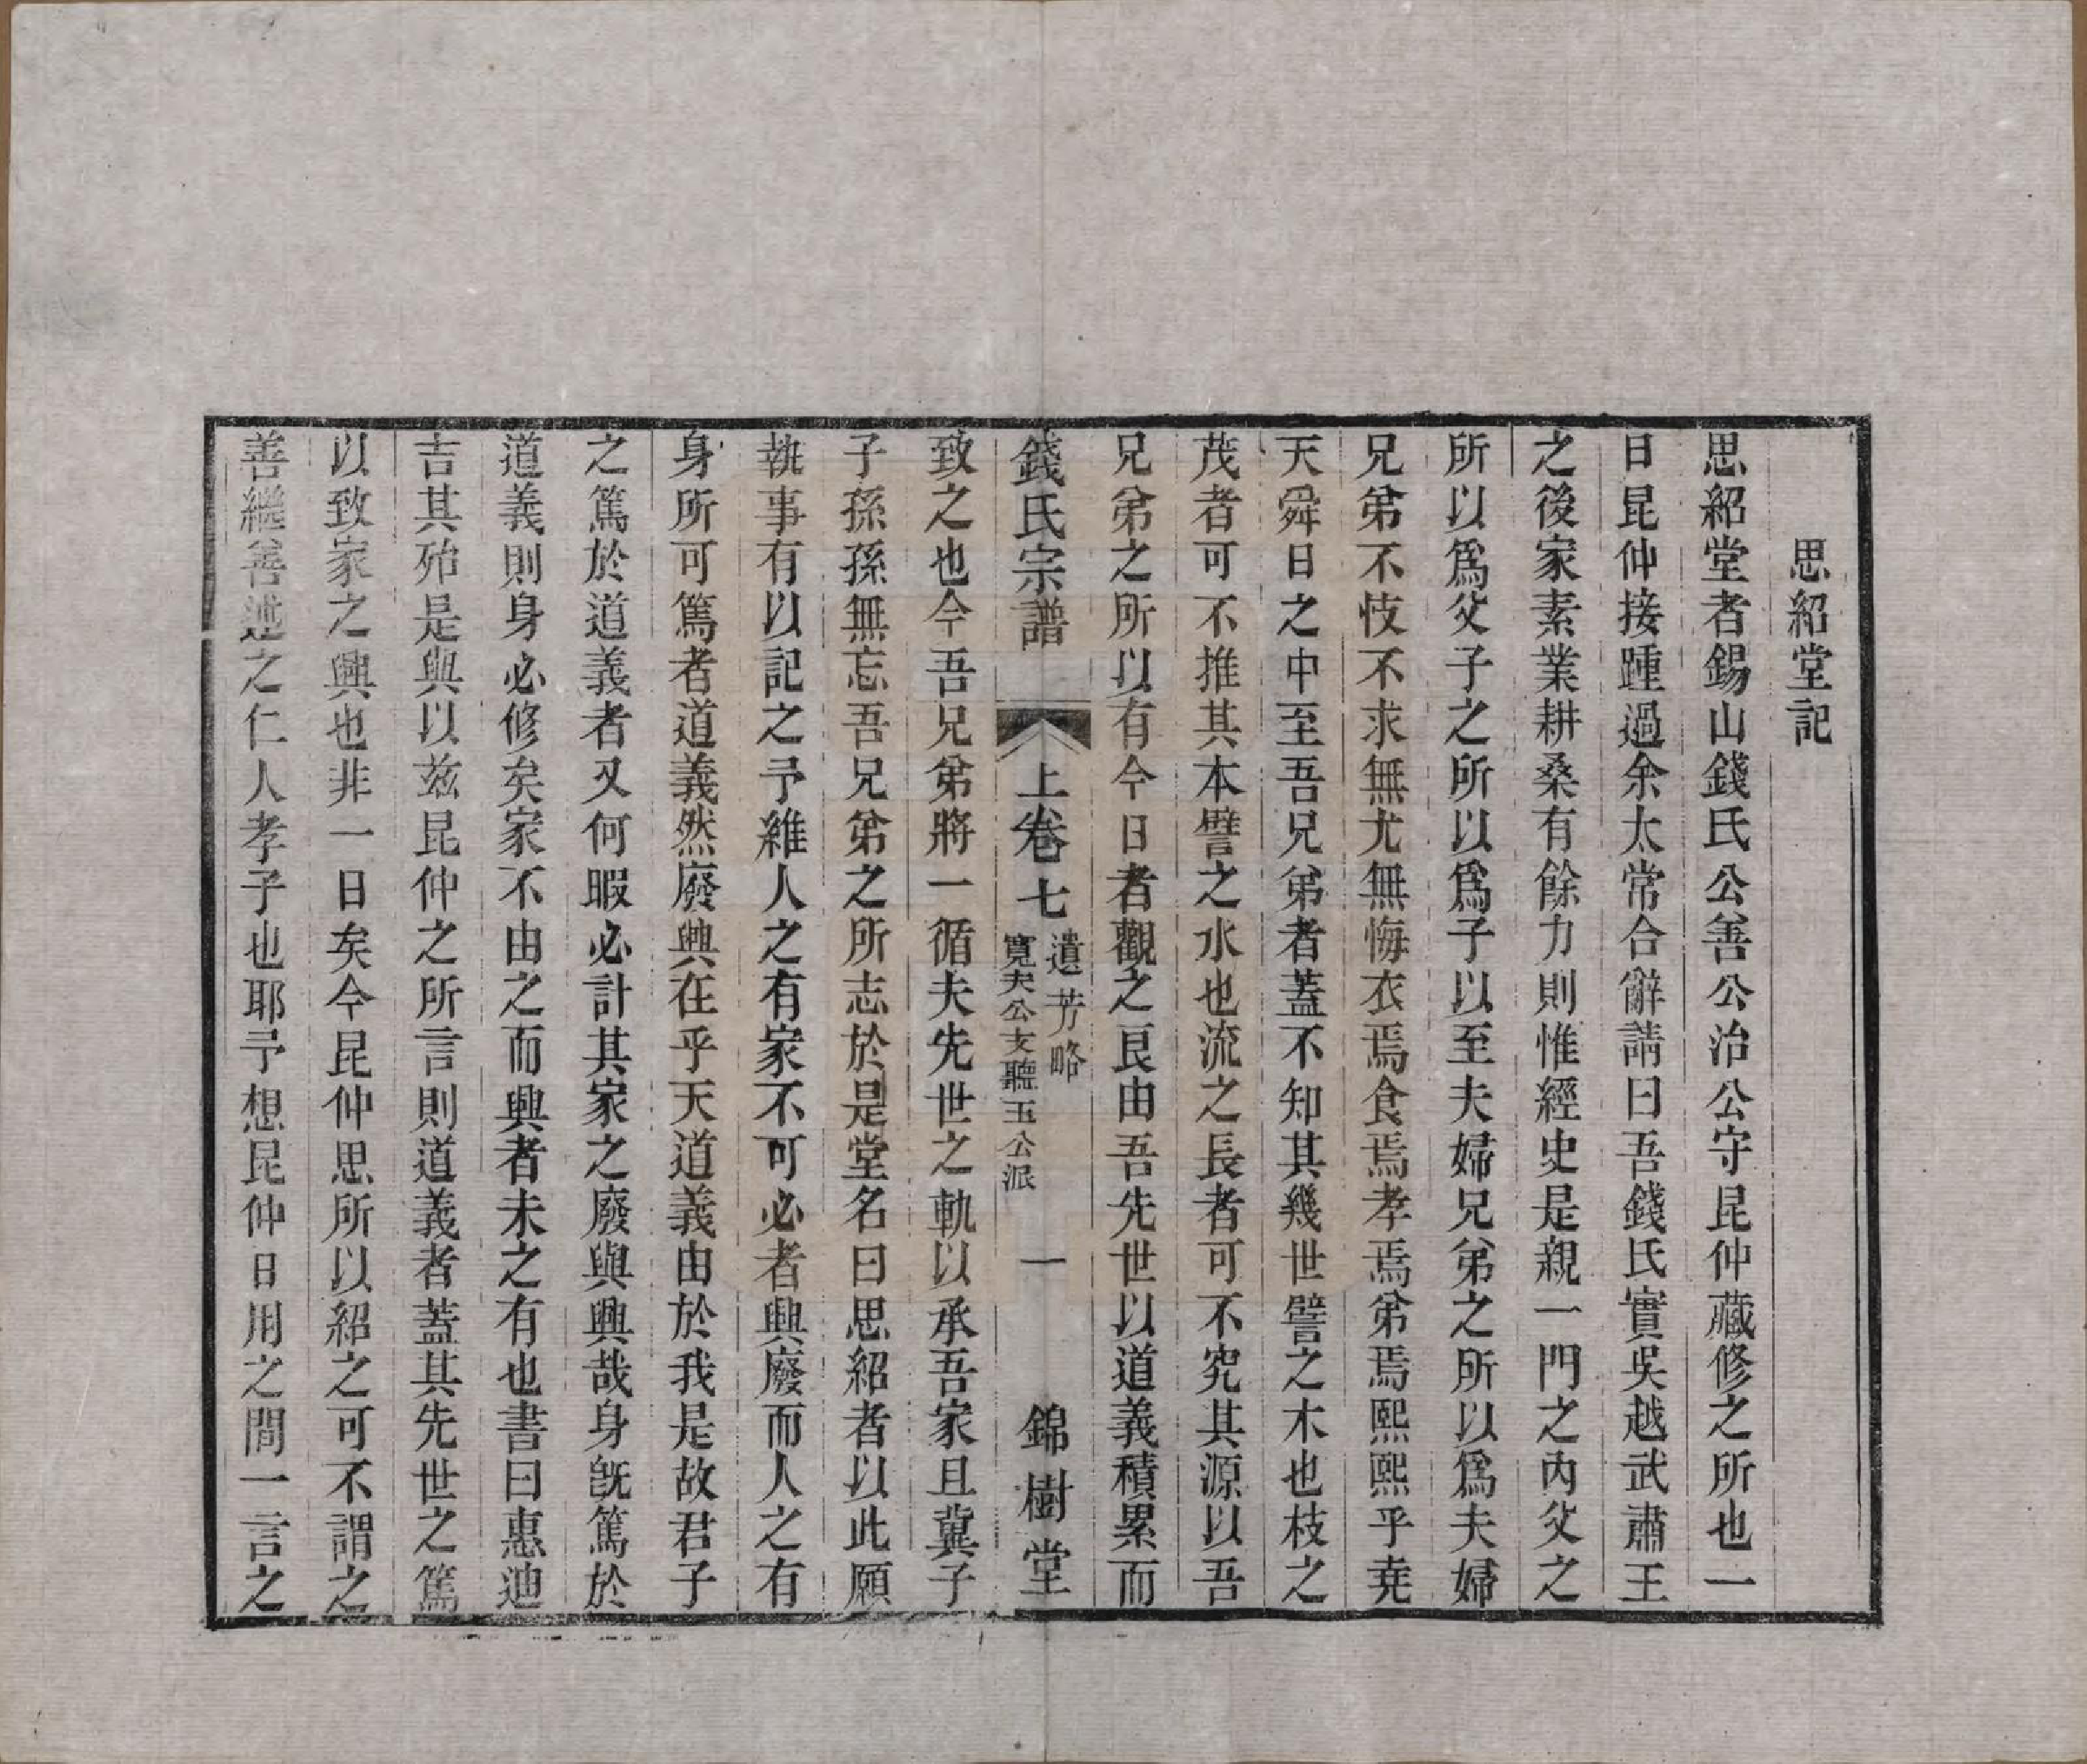 思紹堂記
思紹堂者錫山錢氏公善公治公守昆仲藏修之所也一
日昆仲接踵過余太常合辭請曰吾錢氏實吳越武肅王
之後家素業耕桑有餘力則惟經史是親一門之內父之
所以為父子之所以為子以至夫婦兄弟之所以為夫婦
兄弟不忮不求無尤無悔衣焉食焉孝焉弟焉熙熙乎堯
天舜日之中至吾兄弟者蓋不知其幾世譬之木也枝之
茂者可不推其本譬之水也流之長者可不究其源以吾
兄弟之所以有今日者觀之良由吾先世以道義積累而
錢氏宗譜
上卷七
遺芳略
寬夫公支聽玉公派
一
錦樹堂
致之也今吾兄弟將一循夫先世之軌以承吾家且冀子
子孫孫無忘吾兄弟之所志於是堂名曰思紹者以此願
執事有以記之予維人之有家不可必者興廢而人之有
身所可篤者道義然廢興在乎天道義由於我是故君子
之篤於道義者又何暇必計其家之廢與興哉身既篤於
道義則身必修矣家不由之而興者未之有也書曰惠迪
吉其殆是與以茲昆仲之所言則道義者蓋其先世之篤
以致家之興也非一日矣今昆仲思所以紹之可不謂之
善繼善述之仁人孝子也耶予想昆仲日用之間一言之